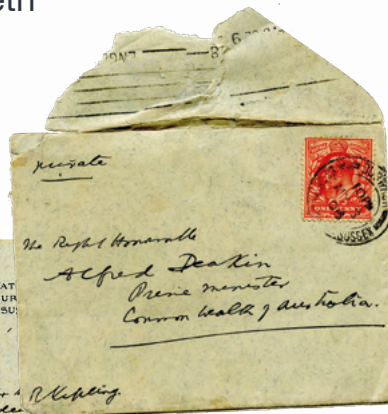 private
The Right Honourable
Alfred Deakin
Prime minister
Commonwealth of Australia.
R Kipling.
ONE PENNY
SUSSEX
ENGL
AT
UR
SU